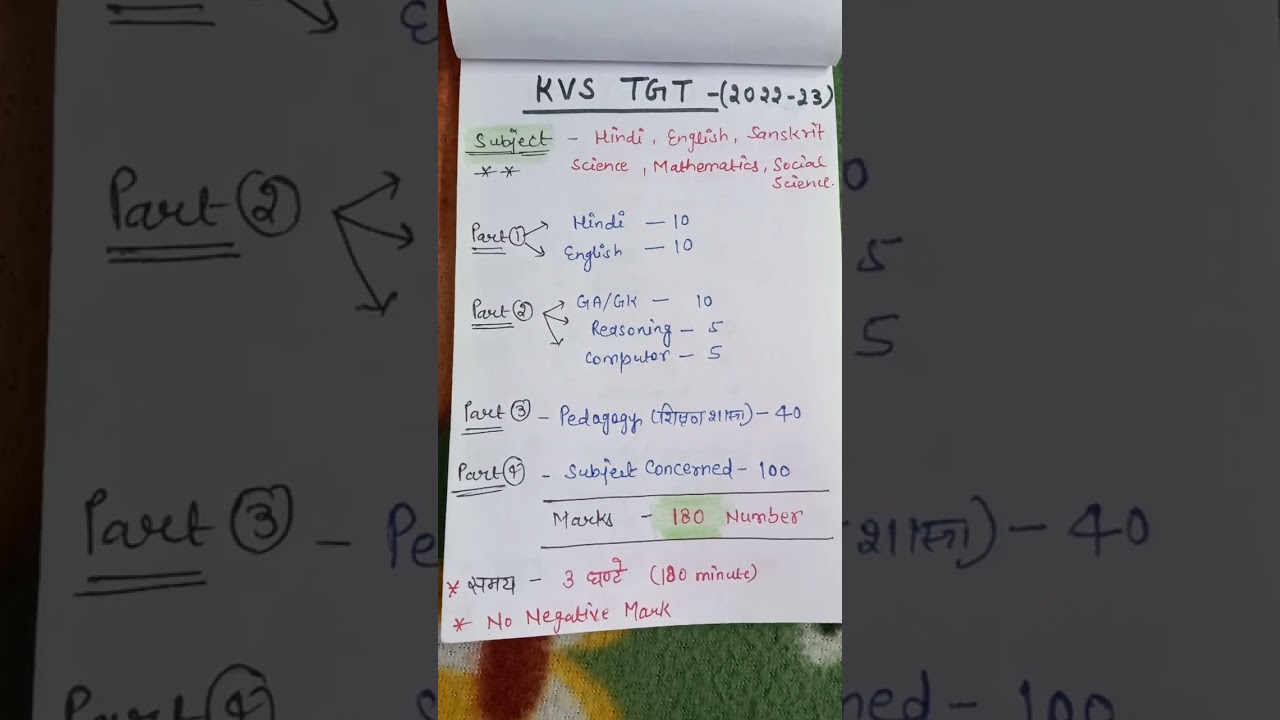 KVS TGT - (2022-23)
Subject - Hindi, English, Sanskrit
** Science, Mathematics, Social
Science.
Part ① Hindi - 10
English - 10
Part ② GA/GK - 10
Reasoning - 5
Computer - 5
Part ③ - Pedagogy (शिक्षण शास्त्र) - 40
Part ④ - Subject Concerned - 100
Marks - 180 Number
* समय - 3 घण्टे (180 minute)
* No Negative Mark